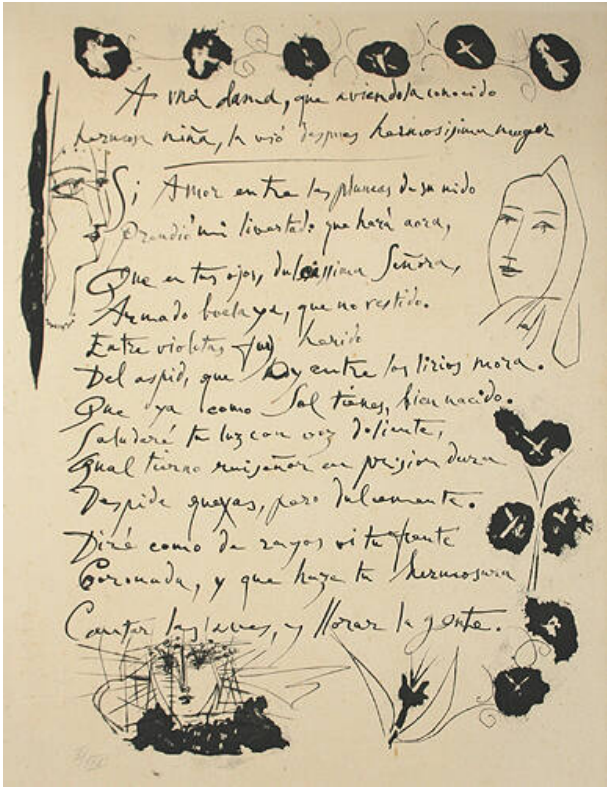 A una dama, que aviendola conocido
hermosa niña, la vió despues hermosisima muger
Si Amor entre las plumas de su nido
Prendió mi livertad, que hará aora,
Que en tus ojos, dulcissima Señora,
Armado buela ya, que no vestido.
Entre violetas fui herido
Del aspid, que oy entre los lirios mora.
Que ya como Sol tienes, bien nacido.
Saludaré tu luz con voz doliente,
Qual tierno ruiseñor en prision dura
Despide quexas, pero dulcemente.
Diré como de rayos vi tu frente
Coronada, y que haze tu hermosura
Cantar las aves, y llorar la gente.